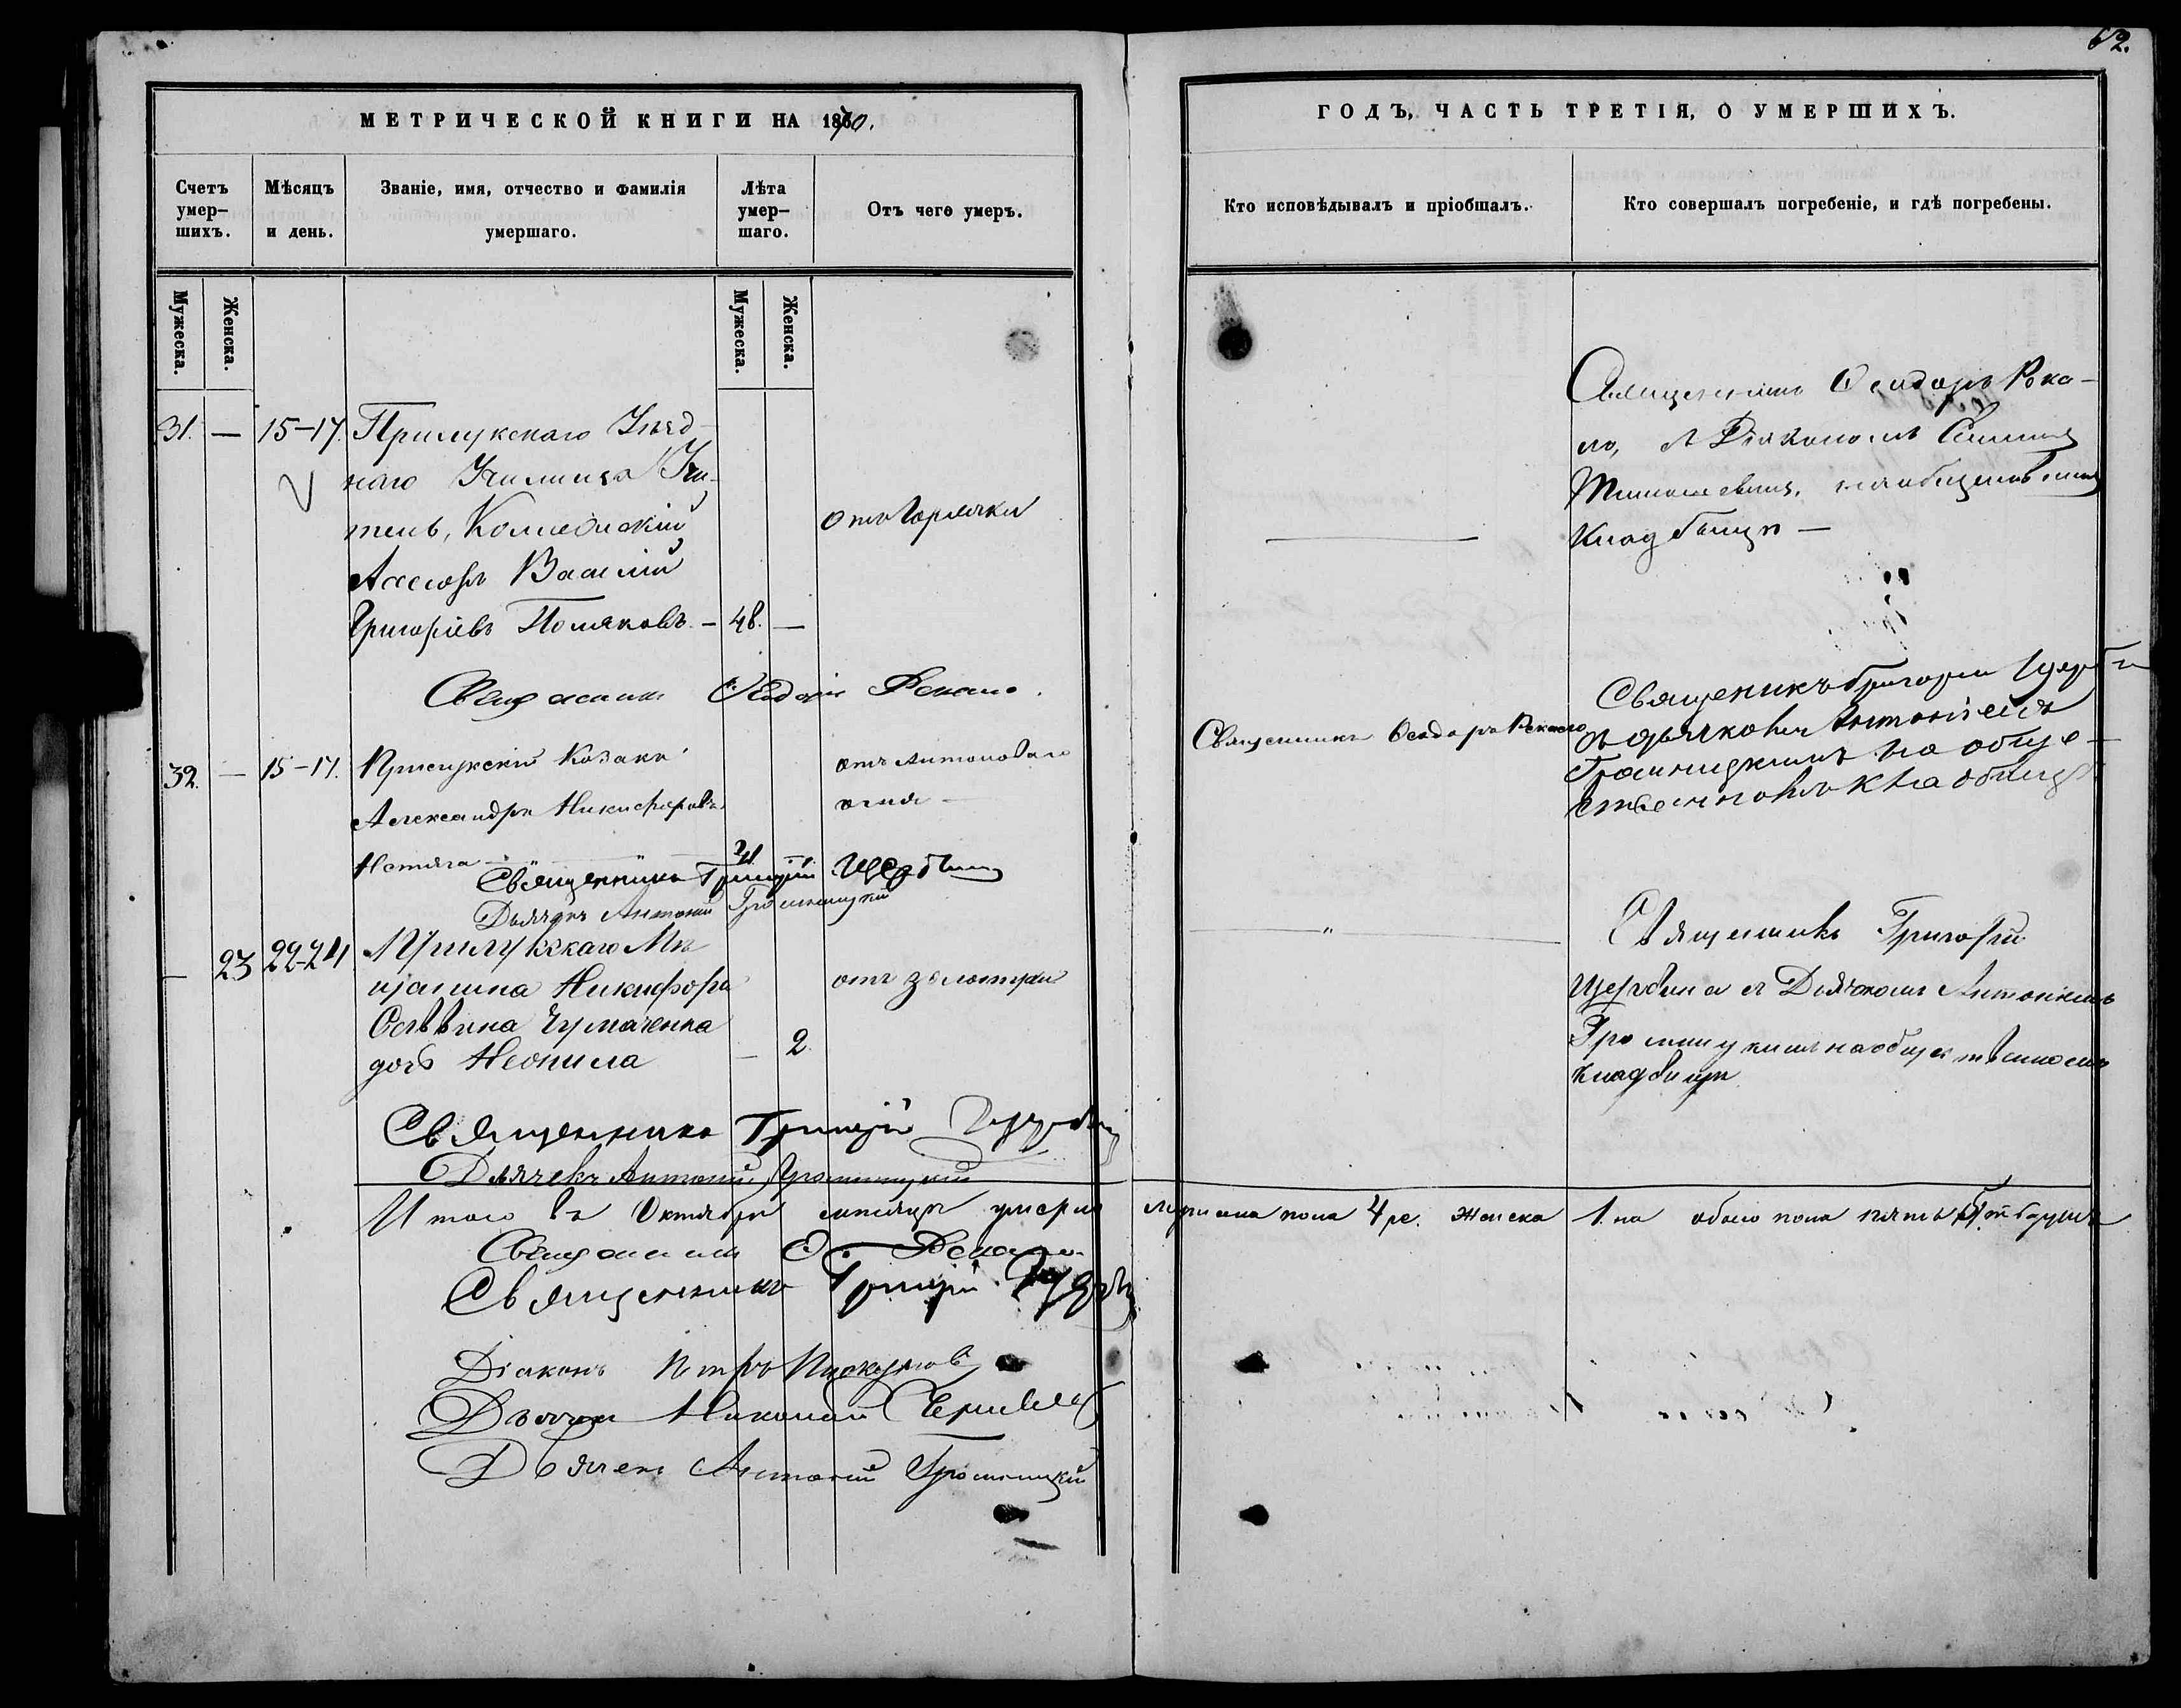 62.
МЕТРИЧЕСКОЙ КНИГИ НА 1870.
ГОДЪ, ЧАСТЬ ТРЕТІЯ, О УМЕРШИХЪ.
Счетъ умер-шихъ.
Мѣсяцъ и день.
Званіе, имя, отчество и фамилія умершаго.
Лѣта умер-шаго.
Отъ чего умеръ.
Кто исповѣдывалъ и пріобщалъ.
Кто совершалъ погребеніе, и гдѣ погребены.
Мужеска.
Женска.
Мужеска.
Женска.
31. — 15-17. Прилукскаго Уѣзд-
наго Училища Учи-
тель, Коллежскій
Ассесоръ Василій
Григоріевъ Поляковъ. — 48. —
отъ Горячки
Священникъ Ѳеодоръ Рока-
ло, съ Діакономъ
на обществен.
Кладбищѣ —
Священникъ Ѳеодоръ Рокало.
32. — 15-17. Прилукскій Козакъ
Александръ Никифоровъ
Нетяга
отъ Антонова
огня —
Священникъ Ѳеодоръ Рокало
Священикъ Григорій Щерби
съ дьячкомъ Антоніемъ
Громницкимъ на обще-
ственномъ кладбищѣ
Священникъ Григорій Щербина
Дьячекъ Антоній Громницкій
— 23 22-24 Прилукскаго Мѣ
щанина Никифора
Чумаченка
дочь Неонила — 2.
отъ золотухи
Священникъ Григорій
Щербина съ Дьячкомъ Антоніемъ
Громницкимъ на общественномъ
кладбищѣ
Священникъ Григорій Щербина
Дьячекъ Антоній Громницкій
Итого въ Октябрѣ мѣсяцѣ умерло мужеска пола 4ре. женска 1. на обоего пола пять душъ
Священникъ Ѳ. Рокало
Священникъ Григорій Щерби
Діаконъ Петръ
Дьячекъ Николай
Дьячекъ Антоній Громницкій